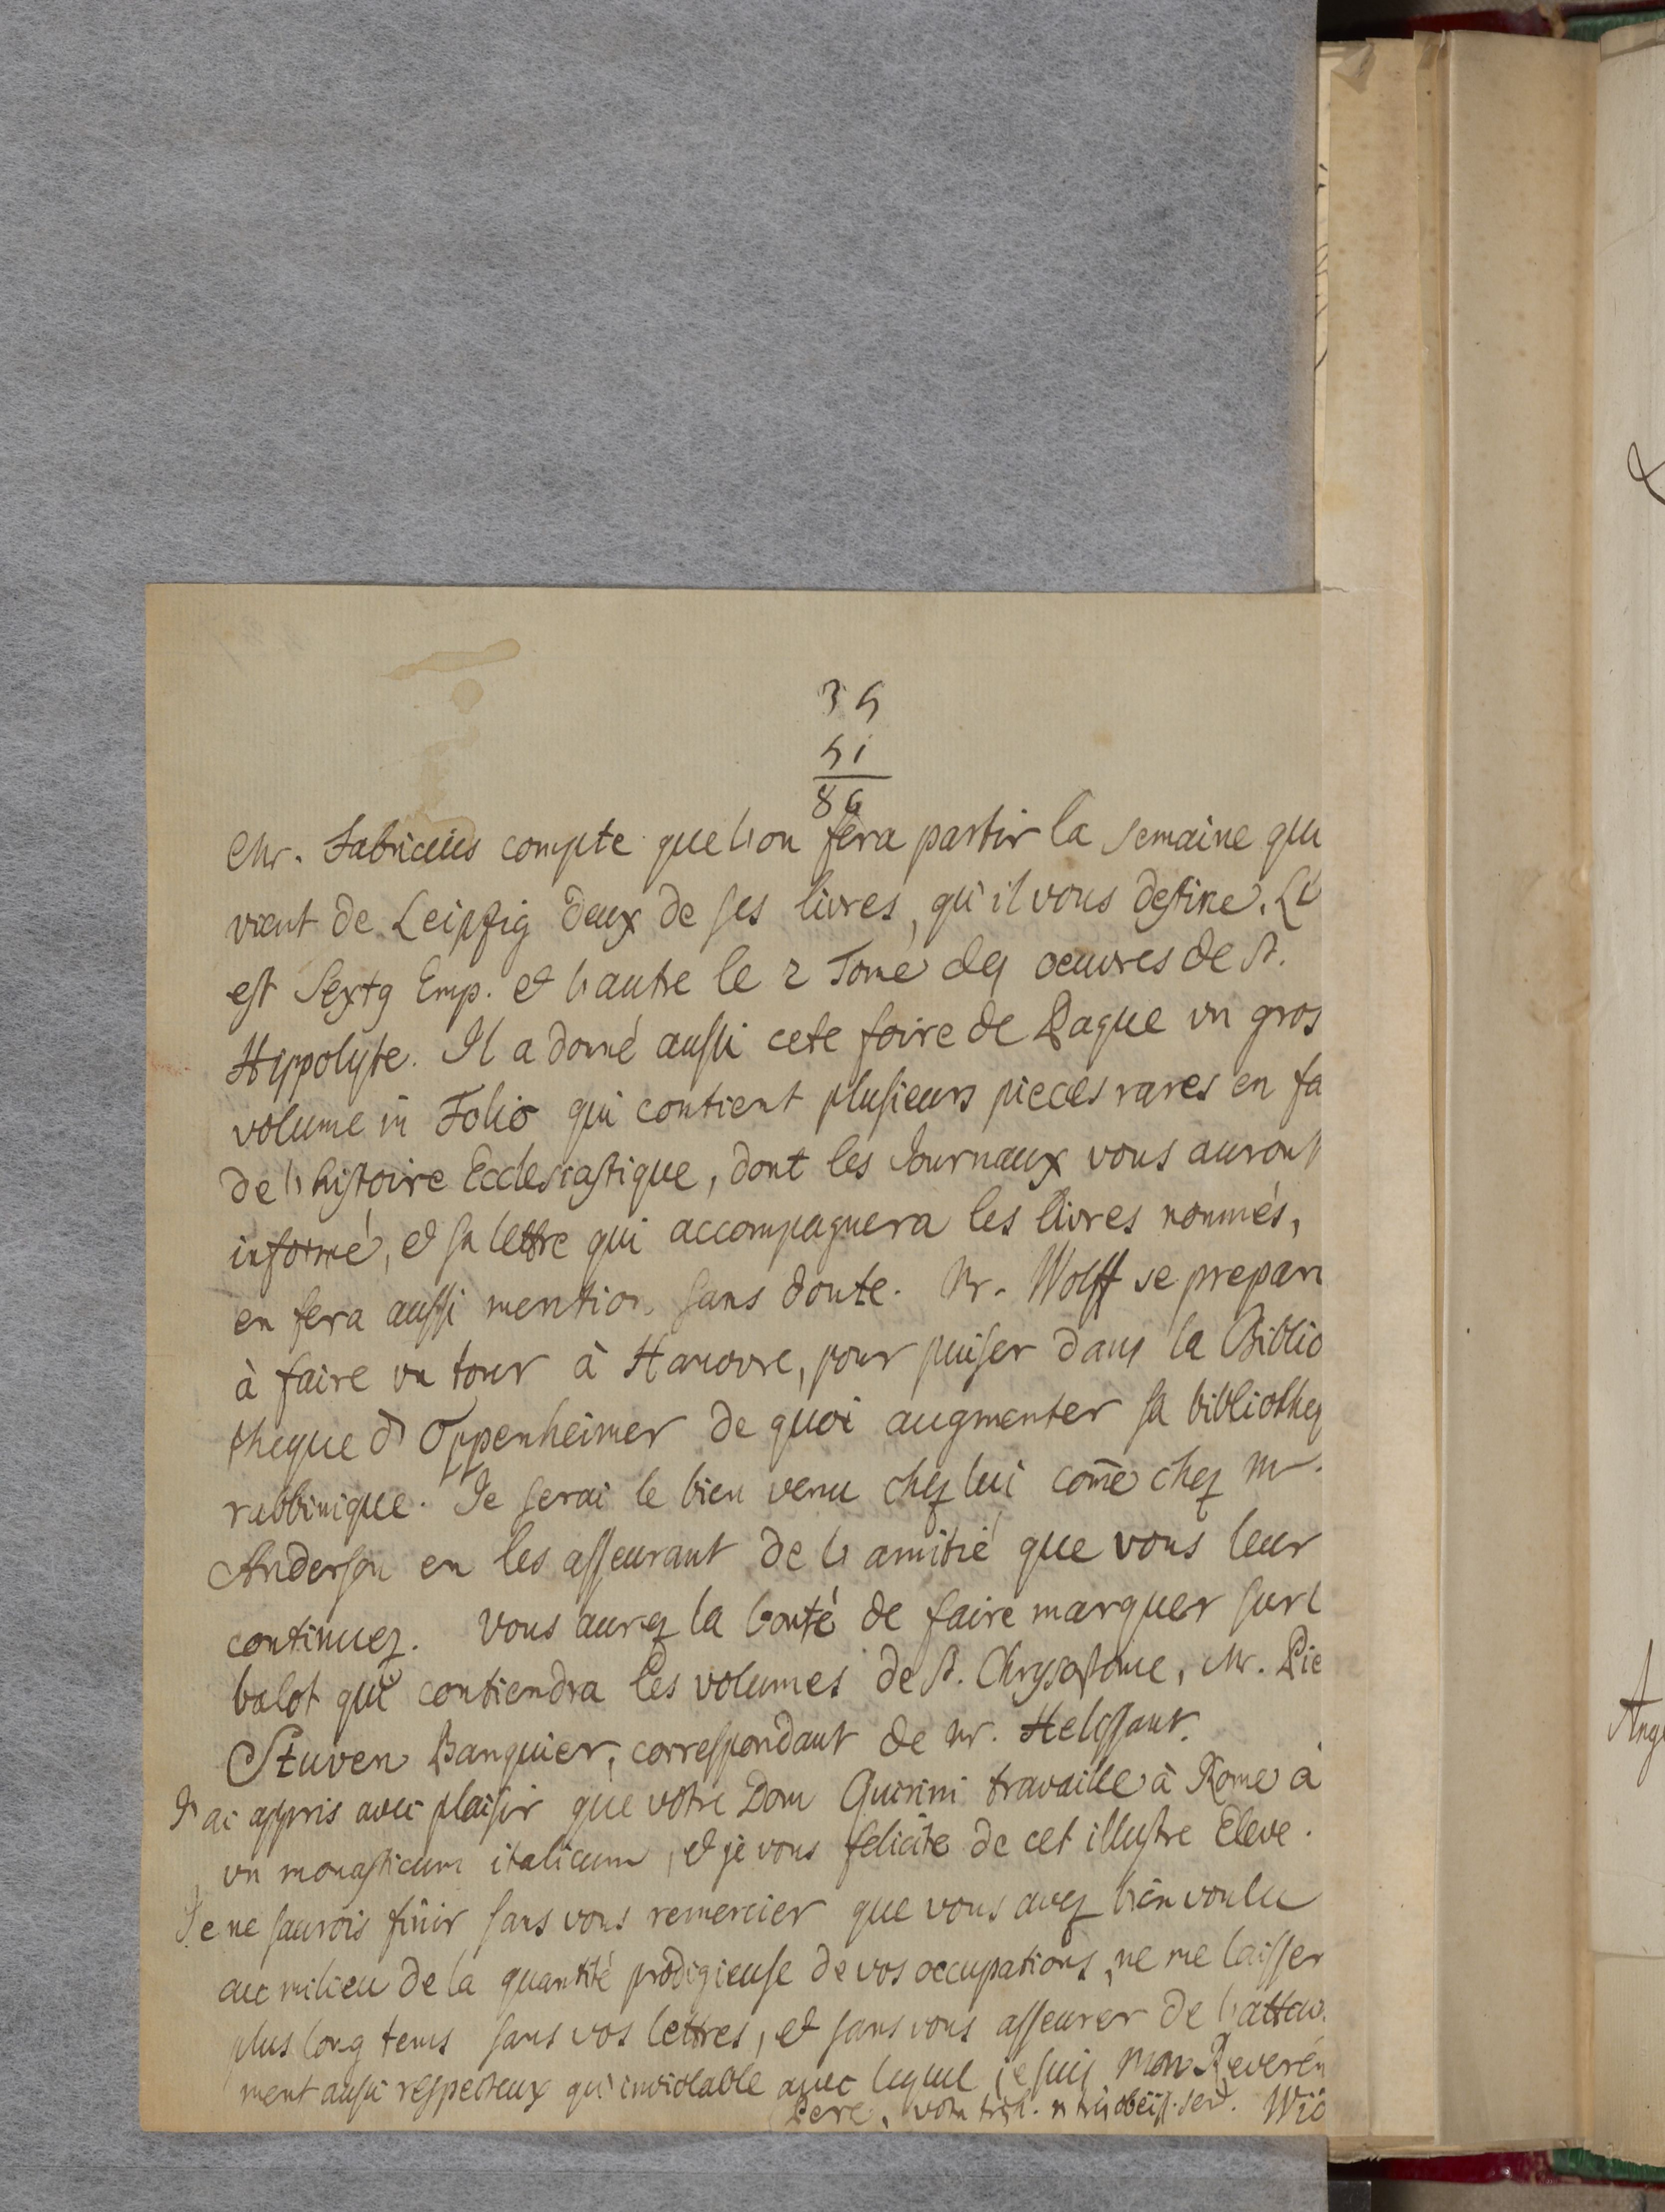 35
51
86
Mr. Fabricius compte que l'on fera partir la semaine qui
vient de Leipzig deux de ses livres, qu'il vous destine. L'u
est Sextg Emp. et l'autre le 2 Tome des oeuvres de St.
Hippolyte. Il a donné aussi cete foire de Paque un gros
volume in Folio qui contient plusieurs pieces rares en fa
de l'histoire Ecclesiastique, dont les Journaux vous auront
informé, et sa lettre qui accompagnera les livres nommés,
en fera aussi mention sans doute. Mr. Wolff se prepare
à faire un tour à Hanovre, pour puiser dans la Biblio
theque d'Oppenheimer de quoi augmenter sa bibliotheq
rabbinique. Je serai le bien venu chez lui come chez Mr.
Anderson en les asseurant de l'amitié que vous leur
continuez. Vous aurez la bonté de faire marquer sur l
balot qui contiendra les volumes de St. Chrysostome, Mr. Pie
Stuven Banquier, correspondant de Mr. Helissant.
J'ai appris avec plaisir que votre Dom Quirini travaille à Rome à
un monasticum italicum, et je vous felicite de cet illustre Eleve.
Je ne saurois finir sans vous remercier que vous avez bien voulu
au milieu de la quantité prodigieuse de vos occupations, ne me laisser
plus long tems sans vos lettres, et sans vous asseurer de l'attac
ment aussi respecteux qu'inviolable avec lequel je suis Mon Reveren
Pere, votre tresh. et tres obeiss. serv. Wid
Ang